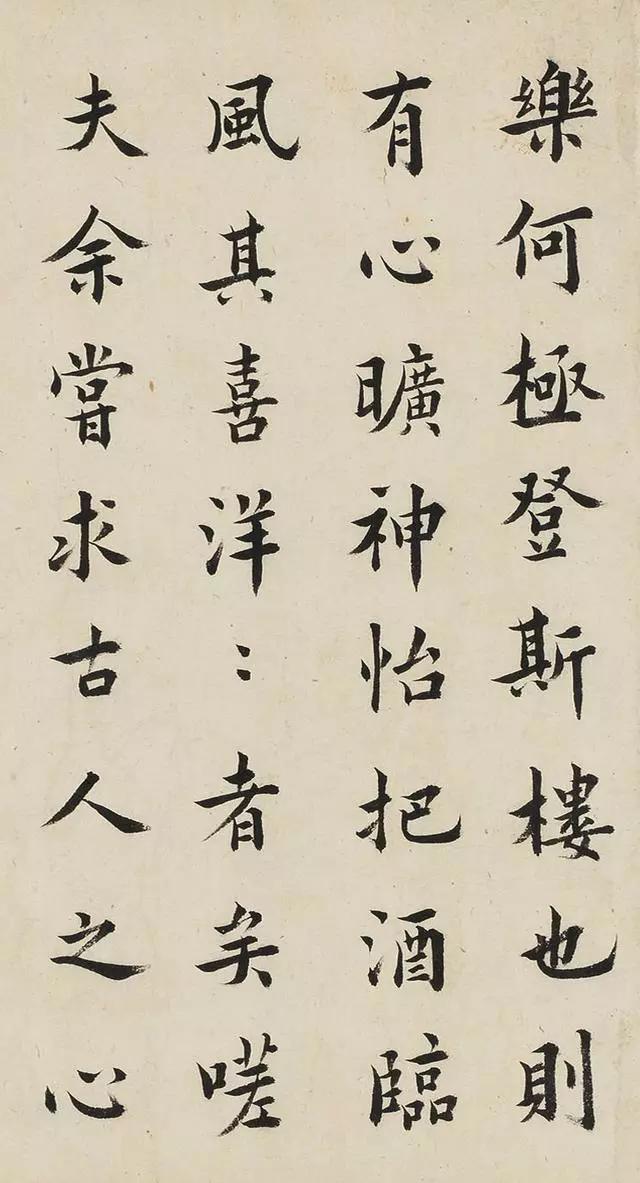 樂何極登斯樓也則
有心曠神怡把酒臨
風其喜洋〻者矣嗟
夫余嘗求古人之心